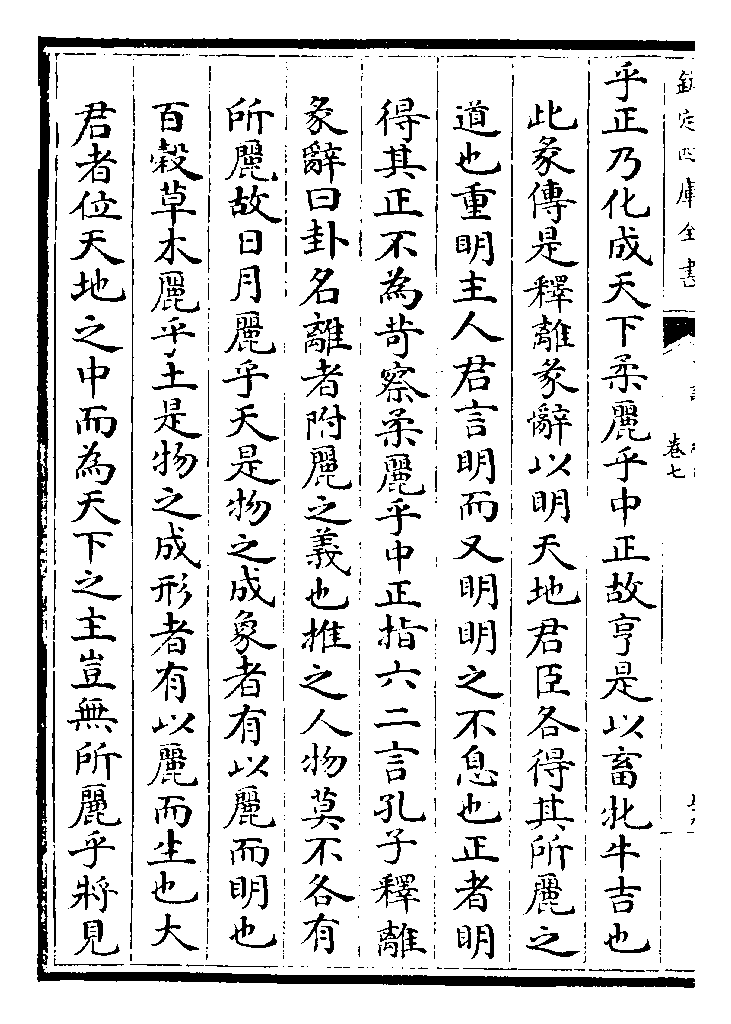 欽定四庫全書
卷七
乎正乃化成天下柔麗乎中正故亨是以畜牝牛吉也
此彖傳是釋離彖辭以明天地君臣各得其所麗之
道也重明主人君言明而又明明之不息也正者明
得其正不為苛察柔麗乎中正指六二言孔子釋離
彖辭曰卦名離者附麗之義也推之人物莫不各有
所麗故日月麗乎天是物之成象者有以麗而明也
百穀草木麗乎土是物之成形者有以麗而生也大
君者位天地之中而為天下之主豈無所麗乎將見